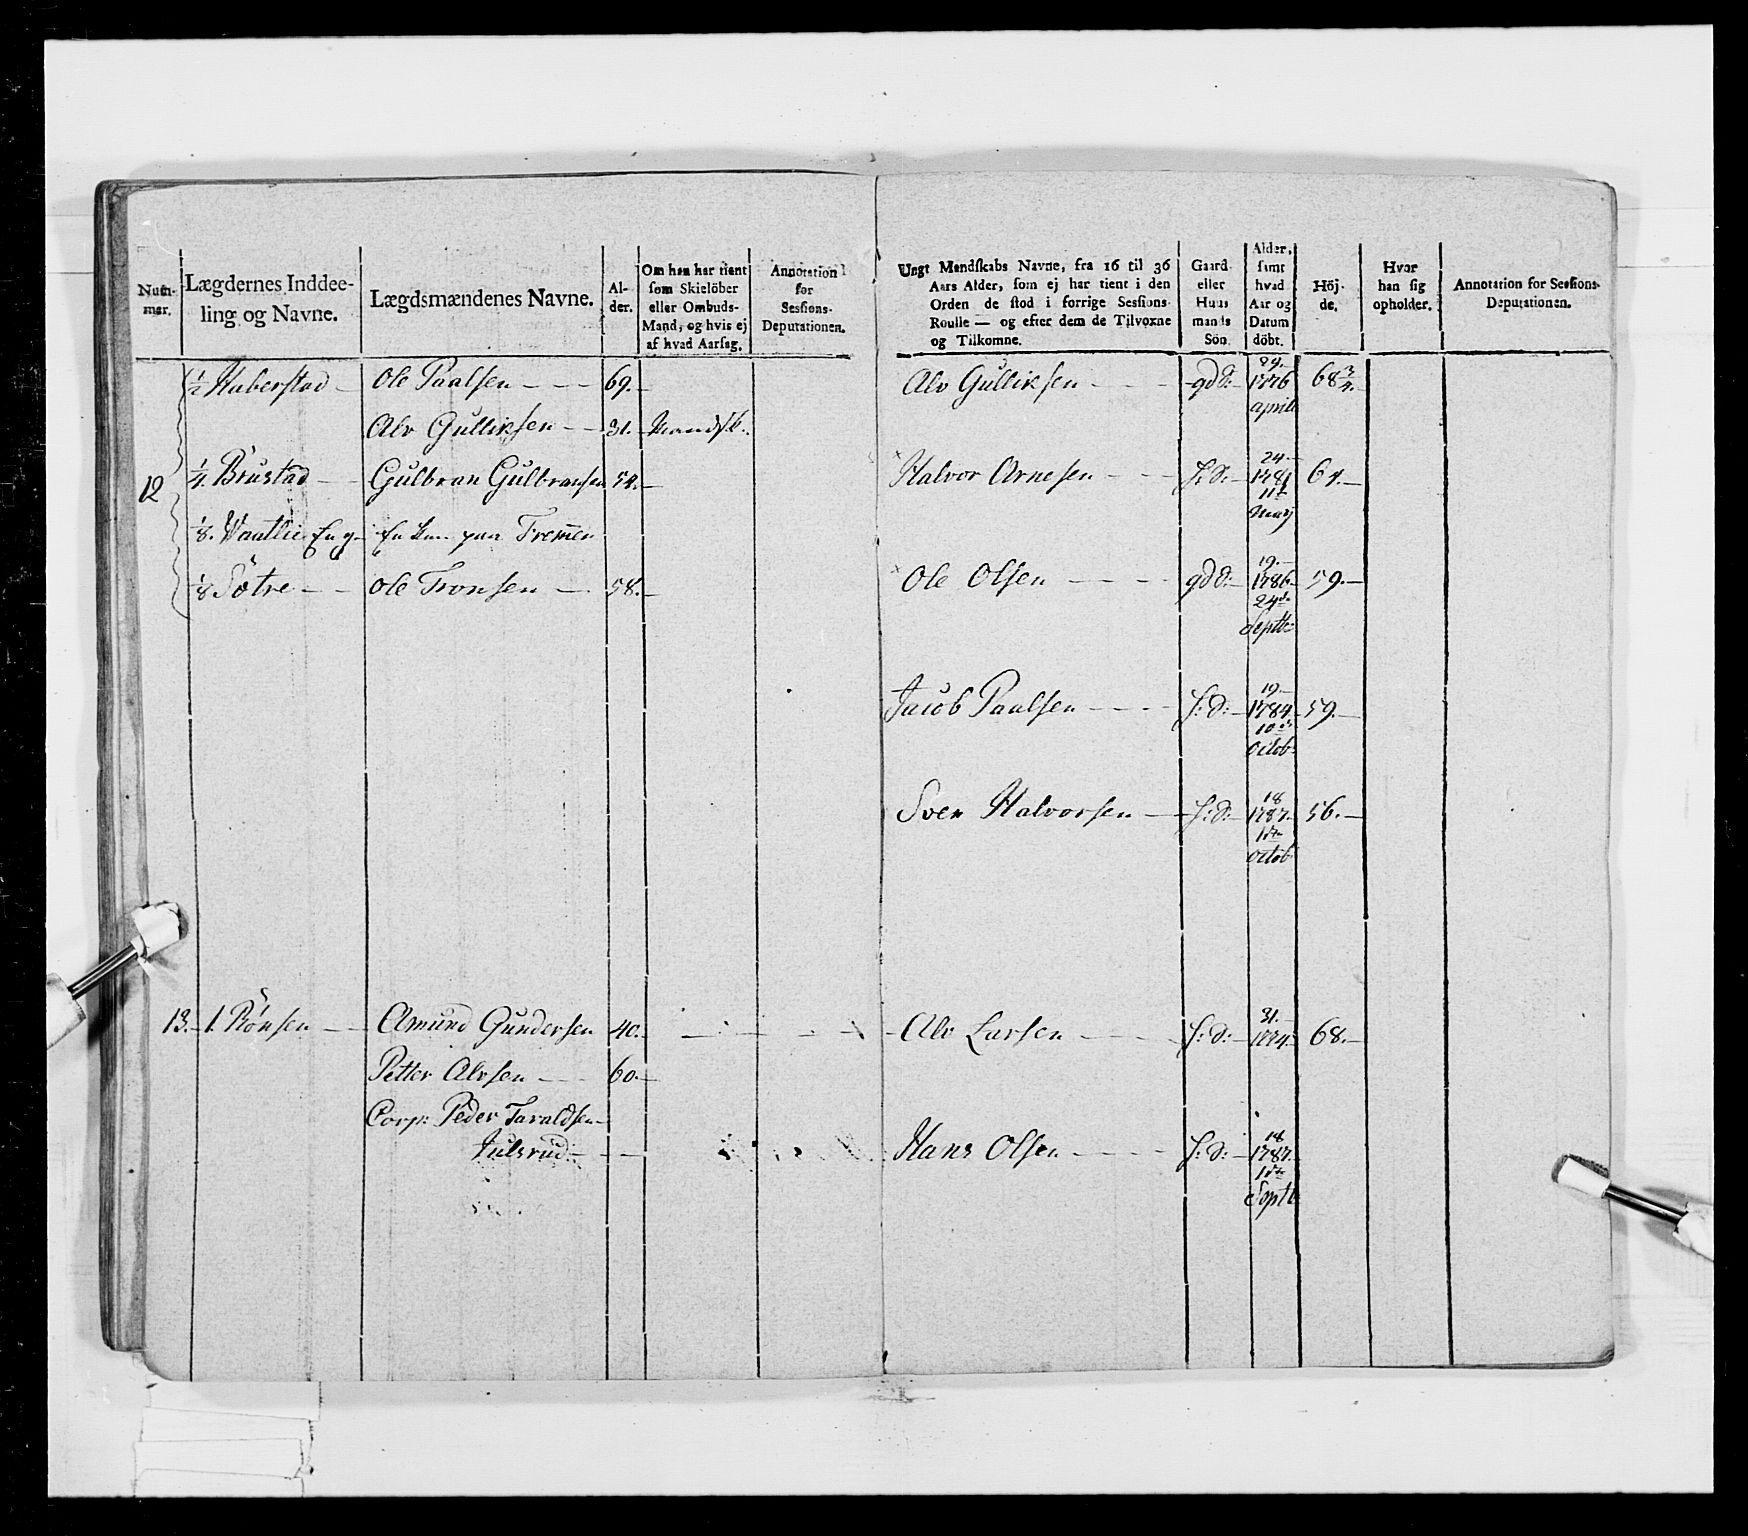 Num-
mer.
Lægdernes Inddee-
ling og Navne.
Lægdsmændenes Navne.
Al-
der.
Om han har tient
som Skielöber
eller Ombuds-
Mand, og hvis ej
af hvad Aarsag.
Annotation
for
Sessions-
Deputationen.
12
1/2 Haberstad - Ole Paalsen - - - 69.-
Alv Gulliksen - - 31.- Mandsk.
1/4. Brustad - Gulbran Gulbransen 54.-
1/8. En g- paa Fremen
1/8 Sötre - - Ole Tronsen - 58.-
13.- 1. Rönsen - - Amund Gundersen 40.-
Petter Alvsen - - 60.-
Corp: Peder Taraldsen-
Julsrud - - -
Ungt Mandskabs Navne, fra 16 til 36
Aars Alder, som ej har tient i den
Orden de stod i forrige Sessions-
Roulle — og efter dem de Tilvoxne
og Tilkomne.
Gaard
eller
Huus
mands
Sön.
Alder,
samt
hvad
Aar og
Datum
döbt.
Höj-
de.
Hvor
han sig
opholder.
Annotation for Sessions-
Deputationen.
29.-
Alv Gulliksen - - - gdd:- 1776 68 3/4.-
April
24.-
Halvor Arnesen - - f:d:- 1781 64.-
11te
May
19.-
Ole Olsen - - - gdd:- 1786- 59.-
24de
Septbr:
19.-
Jacob Paalsen - - - f:d:- 1784.- 59.-
10de
Octob:
18
Sven Halvorsen - f:d:- 1787.- 56.-
1ste
Octob:
31.-
Alv Larsen - - - - f:d:- 1774.- 68.-
18
Hans Olsen - - - - f:d:- 1787.-
1ste
Septb